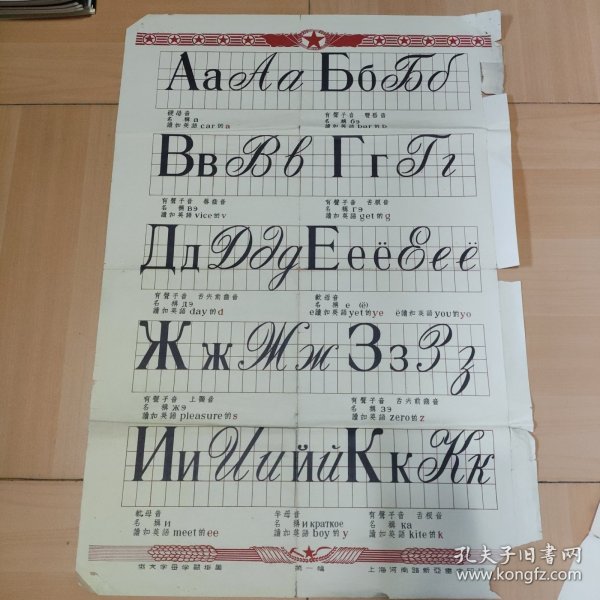 Аа Аа Бб Бб
硬母音
名 稱 а
讀如英語 car 的 a
有聲子音 雙唇音
名 稱 бэ
讀如英語 bar 的 b
Вв Вв Гг Гг
有聲子音 唇齒音
名 稱 вэ
讀如英語 vice 的 v
有聲子音 舌根音
名 稱 гэ
讀如英語 get 的 g
Дд Ддд Ееё Ееё
有聲子音 舌尖前齒音
名 稱 дэ
讀如英語 day 的 d
軟母音
名 稱 е (ё)
е讀如英語 yet 的 ye ё讀如英語 you 的 yo
Жж Жж Зз Зз
有聲子音 上顎音
名 稱 жэ
讀如英語 pleasure 的 s
有聲子音 舌尖前齒音
名 稱 зэ
讀如英語 zero 的 z
Ии Ии йй Кк Кк
軟母音
名 稱 и
讀如英語 meet 的 ee
半母音
名 稱 и краткое
讀如英語 boy 的 y
有聲子音 舌根音
名 稱 ка
讀如英語 kite 的 k
俄文字母學習掛圖
第一幅
上海河南路新亞書店
孔夫子旧书网
www.kongfz.com